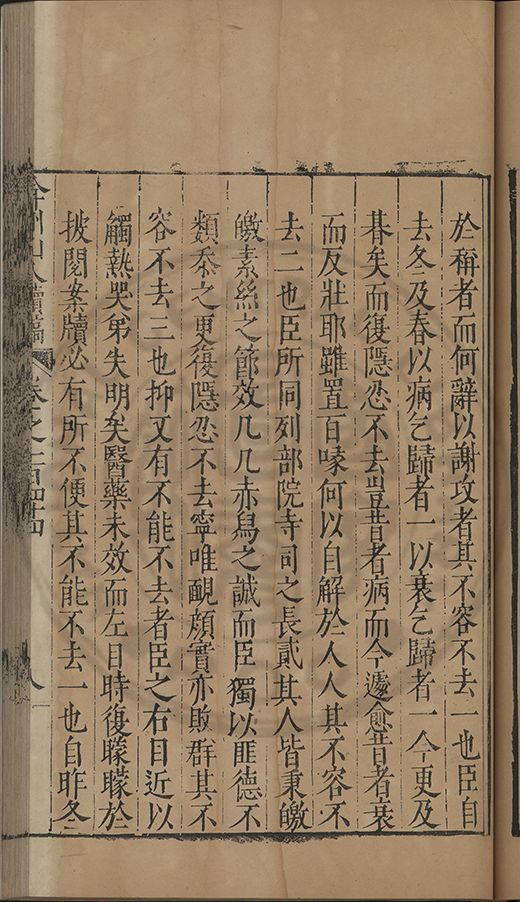 於稱者而何辭以謝攻者其不容不去一也臣自
去冬及春以病乞歸者一以衰乞歸者一今更及
暮矣而復隱忍不去豈昔者病而今遽愈昔者衰
而反壯耶雖置百喙何以自解於人人其不容不
去二也臣所同列部院寺司之長貳其人皆秉皦
皦素絲之節效几几赤舄之誠而臣獨以匪德不
類忝之更復隱忍不去寧唯靦顏實亦敗群其不
容不去三也抑又有不能不去者臣之右目近以
觸熱哭弟失明矣醫藥未效而左目時復矇矇於
披閱案牘必有所不便其不能不去一也自昨冬
弇州山人續稿 卷之一百四十四 八